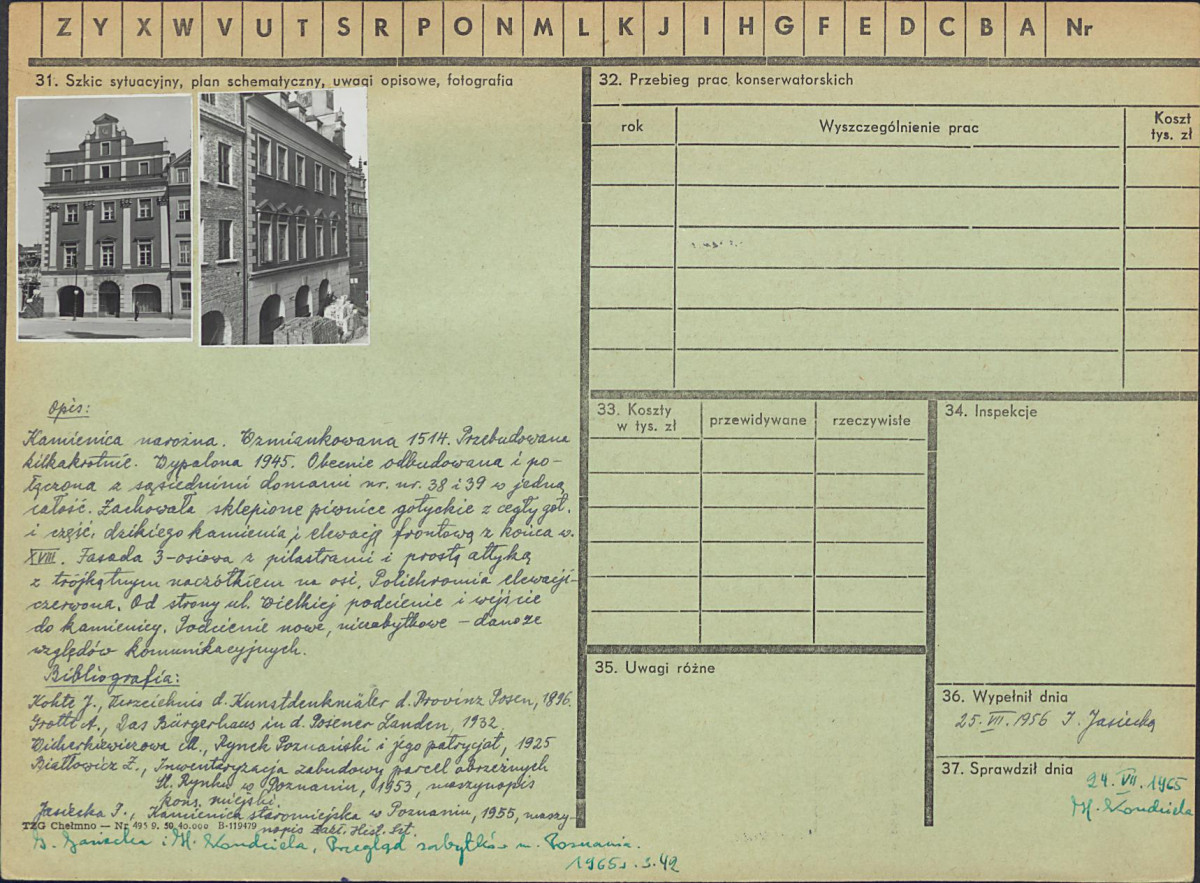 Z Y X W V U T S R P O N M L K J I H G F E D C B A Nr
31. Szkic sytuacyjny, plan schematyczny, uwagi opisowe, fotografia
Opis:
Kamienica narożna. Wzmiankowana 1514. Przebudowana
kilkakrotnie. Wypalona 1945. Obecnie odbudowana i po-
łączona z sąsiednimi domami nr. nr. 38 i 39 w jedną
całość. Zachowała sklepione piwnice gotyckie z cegły got.
i część. dzikiego kamienia i elewację frontową z końca w.
XVIII. Fasada 3-osiowa z pilastrami i prostą attyką
z trójkątnym naczółkiem na osi. Polichromia elewacji-
czerwona. Od strony ul. Wielkiej podcienie i wejście
do kamienicy. Podcienie nowe, niezabytkowe – dano ze
względów komunikacyjnych.
Bibliografia:
Kohte J., Verzeichnis d. Kunstdenkmäler d. Provinz Posen, 1896.
Grotte A., Das Bürgerhaus in d. Posener Landen, 1932
Wicherkiewiczowa M., Rynek Poznański i jego patrycjat, 1925
Białłowicz Z., Inwentaryzacja zabudowy parcel obrzeżnych
St. Rynku w Poznaniu, 1953, maszynopis
kons. miejski.
Jasiecka I., Kamienica staromiejska w Poznaniu, 1955, maszy-
nopis Zakł. Hist. Szt.
TZG Chełmno — Nr 495 9. 50 40.000 B-119479
i H. Kondziela, Przegląd zabytków m. Poznania.
1965. s. 42
32. Przebieg prac konserwatorskich
rok Wyszczególnienie prac Koszt
tys. zł
33. Koszty
w tys. zł przewidywane rzeczywiste
34. Inspekcje
35. Uwagi różne
36. Wypełnił dnia
25. VII. 1956 I. Jasiecka
37. Sprawdził dnia
24. VII. 1965
H. Kondziela